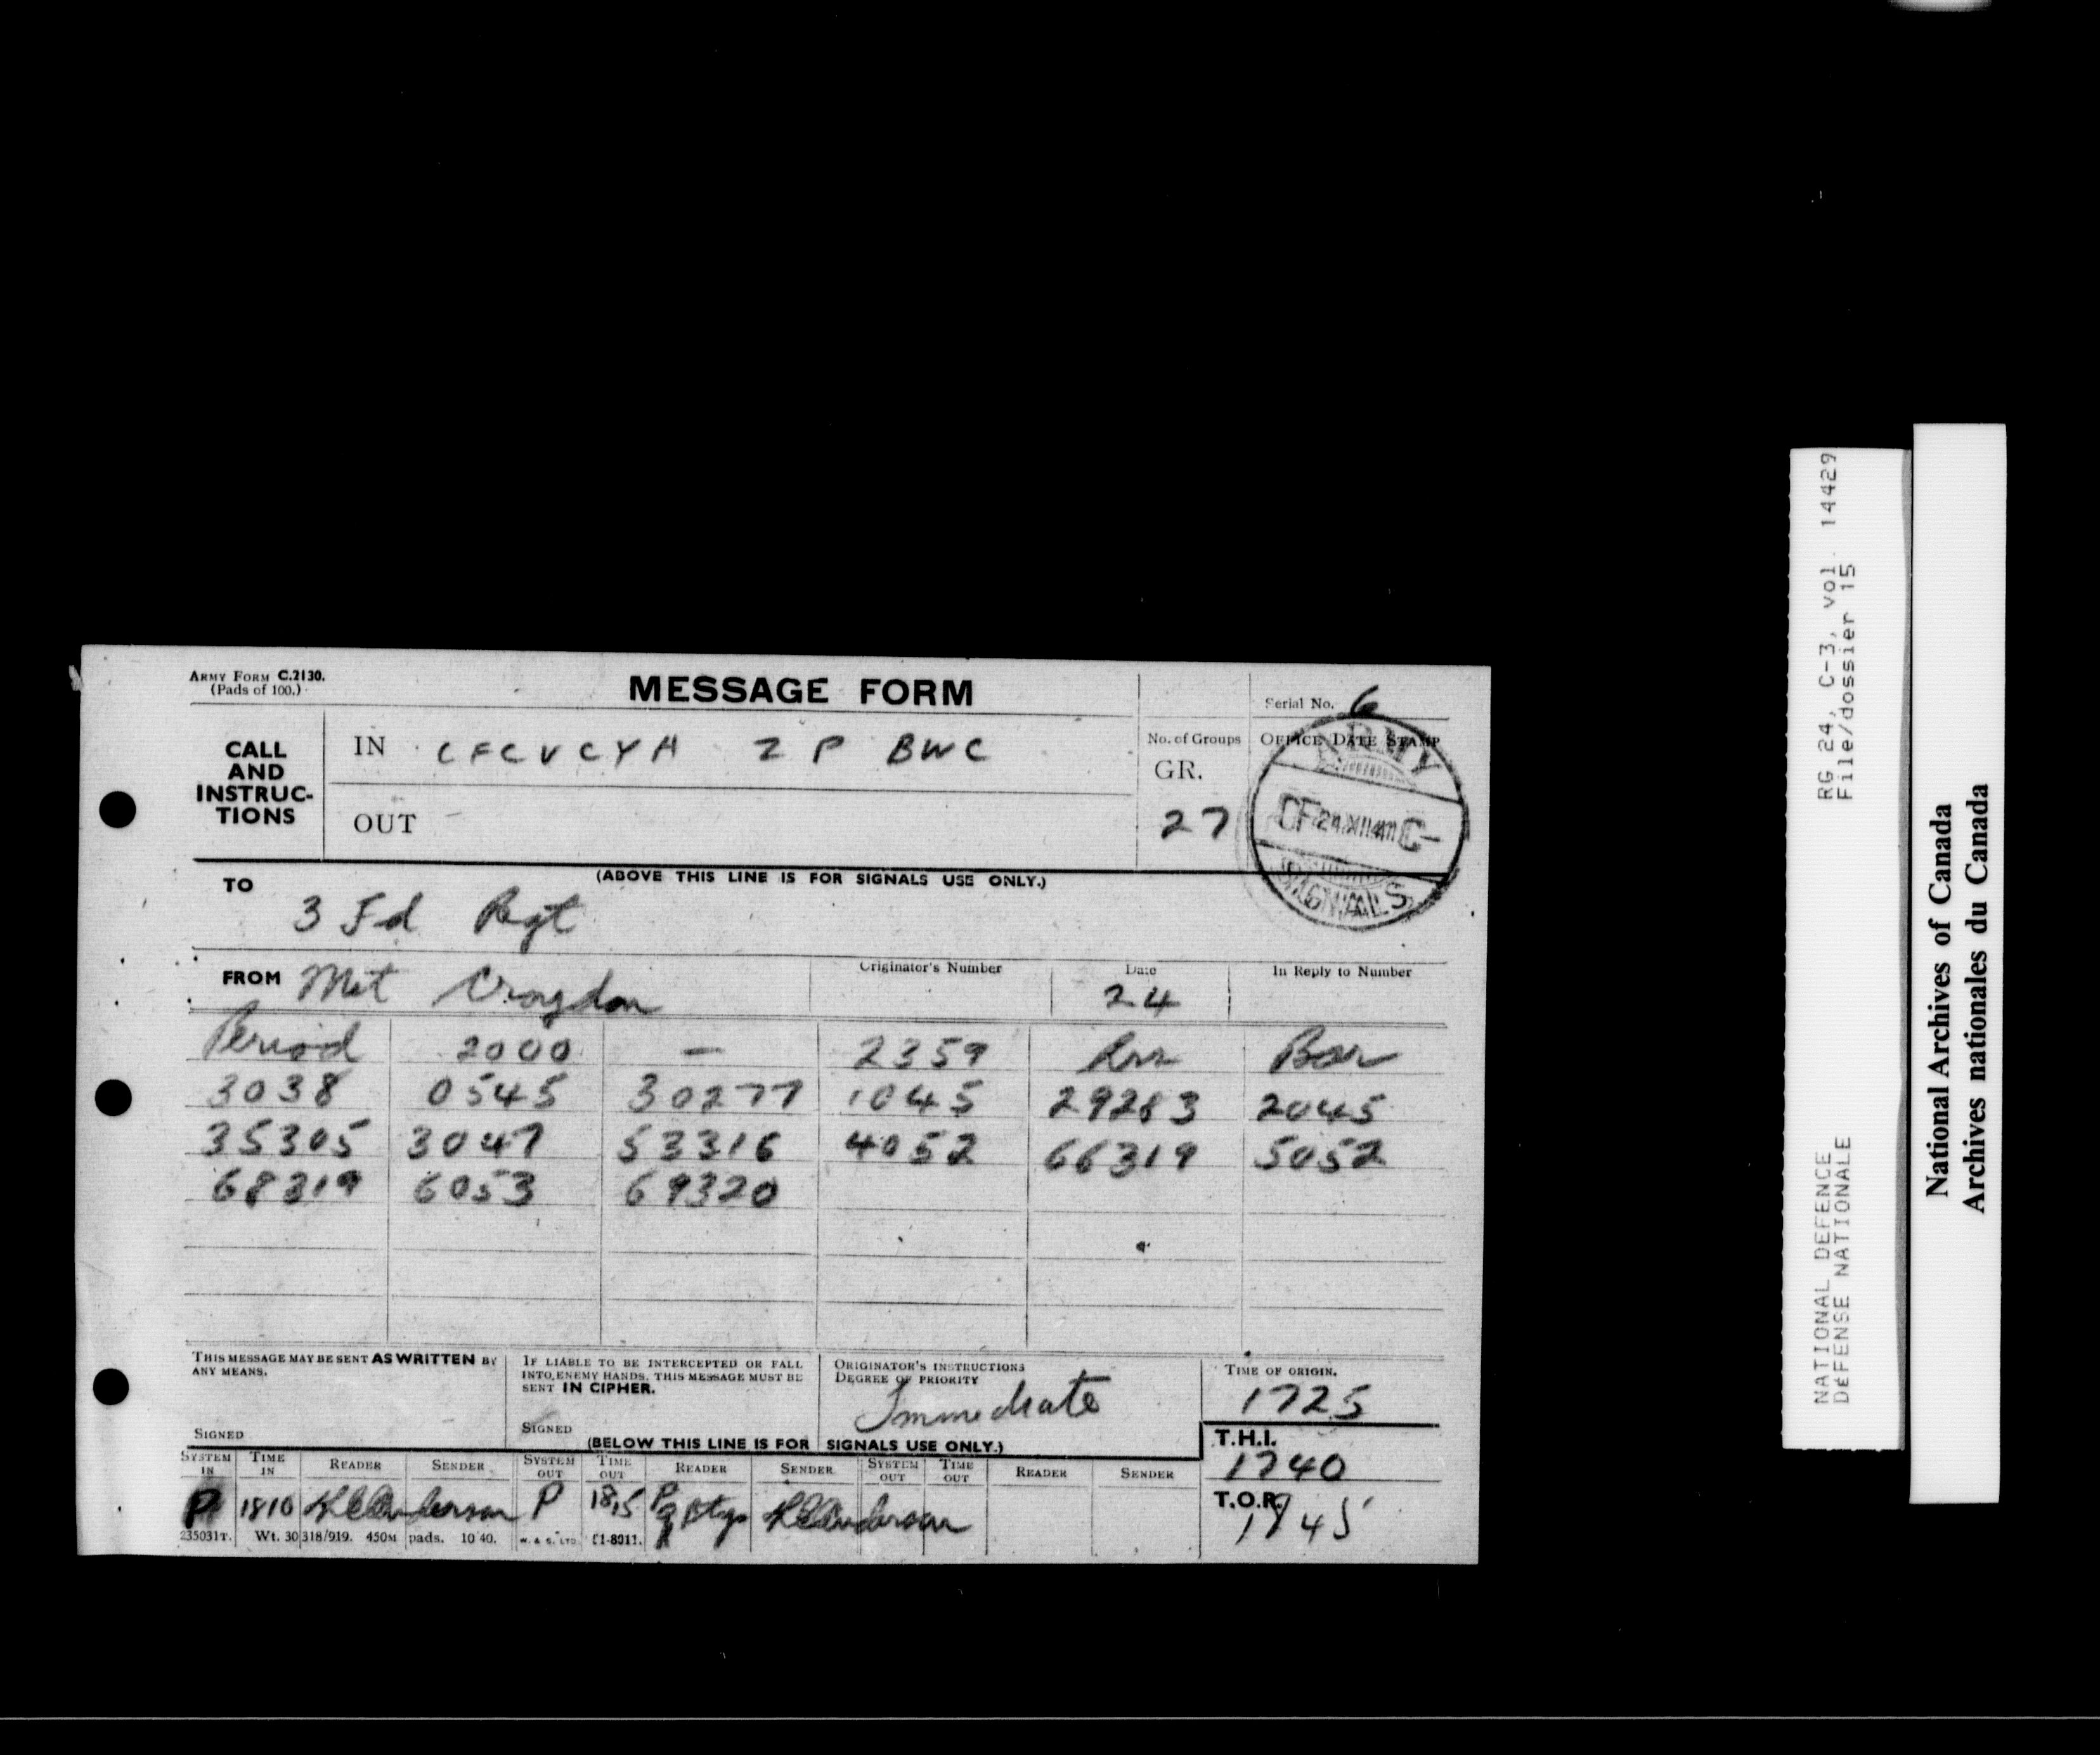 ARMY FORM C.2130.
(Pads of 100.)
MESSAGE FORM
Serial No. 6
CALL AND INSTRUC-TIONS
IN CFCVCYA ZP BWC
No. of Groups
GR.
27
OFFICE DATE STAMP
ARMY
SIGNALS
OUT
(ABOVE THIS LINE IS FOR SIGNALS USE ONLY.)
TO
3 Fd Rgt
FROM Met Croydon
Originator's Number
Date
24
In Reply to Number
Period 2000 — 2359 Bar
3038 0545 30277 1045 29283 2045
35305 3047 53316 4052 66319 5052
68319 6053 69320
THIS MESSAGE MAY BE SENT AS WRITTEN BY ANY MEANS.
SIGNED
IF LIABLE TO BE INTERCEPTED OR FALL INTO ENEMY HANDS, THIS MESSAGE MUST BE SENT IN CIPHER.
SIGNED
ORIGINATOR'S INSTRUCTIONS
DEGREE OF PRIORITY
Immediate
TIME OF ORIGIN.
1725
(BELOW THIS LINE IS FOR SIGNALS USE ONLY.)
T.H.I.
1740
T.O.R.
1745
SYSTEM IN TIME IN READER SENDER SYSTEM OUT TIME OUT READER SENDER SYSTEM OUT TIME OUT READER SENDER
P 1810 P 1815
235031T. Wt. 30318/919. 450M pads. 10 40. W. & S. LTD. 51-8011.
NATIONAL DEFENCE RG 24, C-3, vol. 14429
DÉFENSE NATIONALE File/dossier 15
National Archives of Canada
Archives nationales du Canada